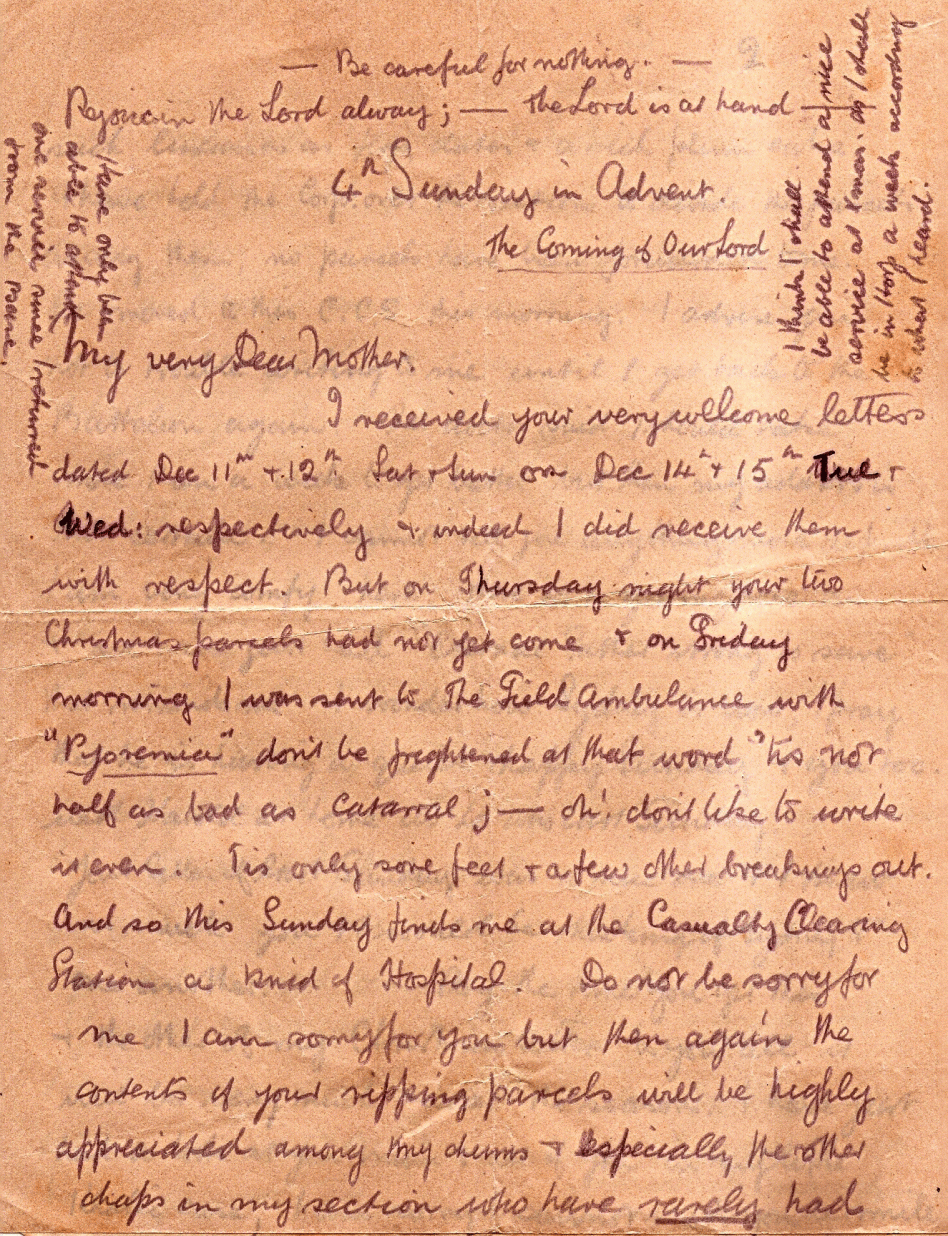 — Be careful for nothing. —
Rejoice in the Lord alway; — the Lord is at hand —
4th Sunday in Advent.
The Coming of Our Lord
I think I shall
be able to attend a nice
service at Xmas. as I shall
be in Hosp a week according
to what I heard.
Have only been
able to attend
one service since I returned
from the Base.
My very Dear Mother.
I received your very wellcome letters
dated Dec 11th + 12th Sat + Sun on Dec 14th + 15th Tue +
Wed: respectively + indeed I did receive them
with respect. But on Thursday night your two
Christmas parcels had not yet come + on Friday
morning I was sent to The Field Ambulance with
"Pyoremia" don't be frightened at that word 'tis not
half as bad as Catarral ; — oh! don't like to write
it even. Tis only sore feet + a few other breakings out.
And so this Sunday finds me at the Casualty Clearing
Station a knid of Hospital. Do not be sorry for
me I am sorry for you but then again the
contents of your ripping parcels will be highly
appreciated among my chums + especially the other
chaps in my section who have rarely had